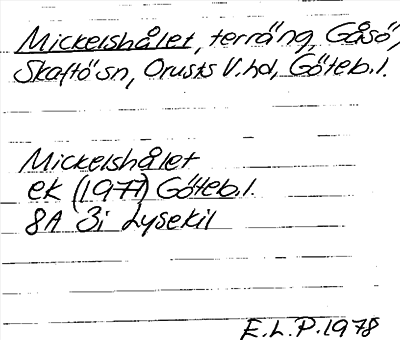 Mickelshålet, terräng, Gåsö,
Skaftö sn, Orusts V. hd, Göteb. l.
Mickelshålet
ek (1977) Göteb. l.
8A 3i Lysekil
E.L.P. 1978